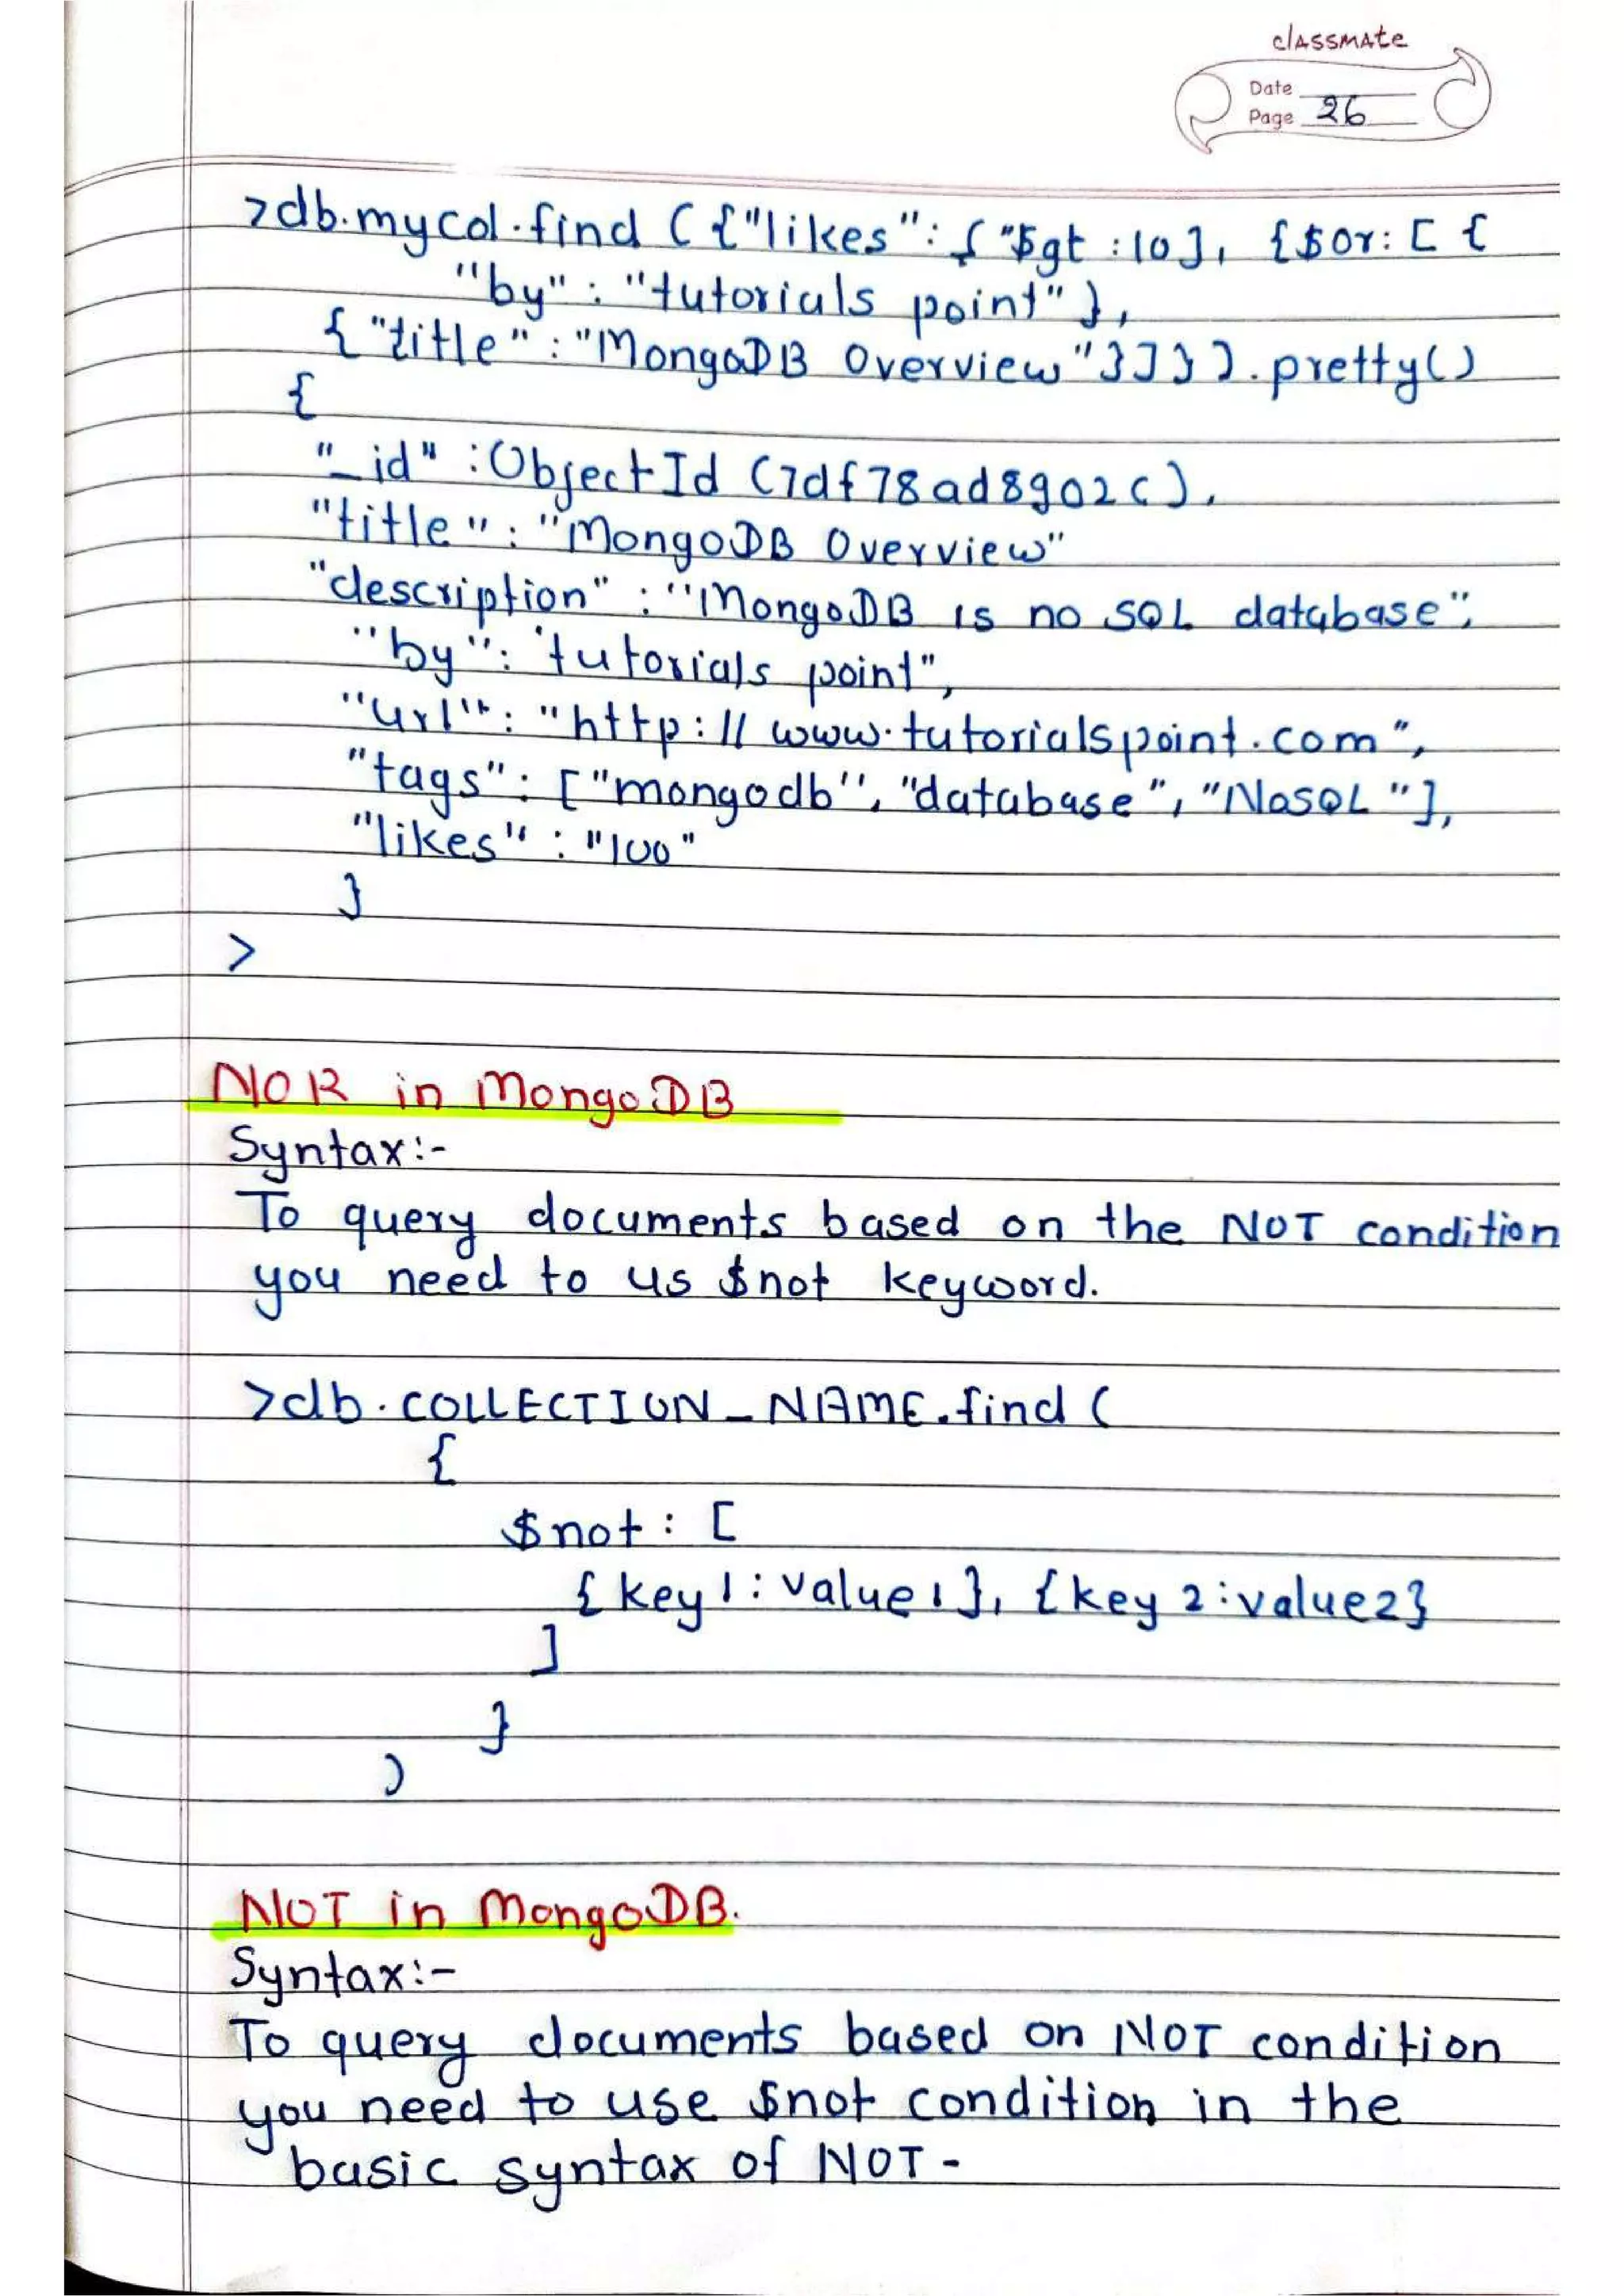 classmate
Date
Page 26
>db.mycol.find ( {"likes": { "$gt : 10}, {$or: [ {
"by" : "tutorials point" },
{ "title" : "MongoDB Overview"}]} ).pretty()
{
"_id" : ObjectId (7df78ad8902c),
"title" : "MongoDB Overview"
"description" : "MongoDB is no SQL database",
"by": 'tutorials point",
"url": "http://www.tutorialspoint.com",
"tags": ["mongodb", "database", "NoSQL"],
"likes" : "100"
}
>
NOR in MongoDB
Syntax:-
To query documents based on the NOT condition
you need to us $not keyword.
>db.COLLECTION_NAME.find (
{
$not: [
{key1: value1}, {key 2: value2}
]
}
)
NOT in MongoDB.
Syntax:-
To query documents based on NOT condition
you need to use $not condition in the
basic syntax of NOT -